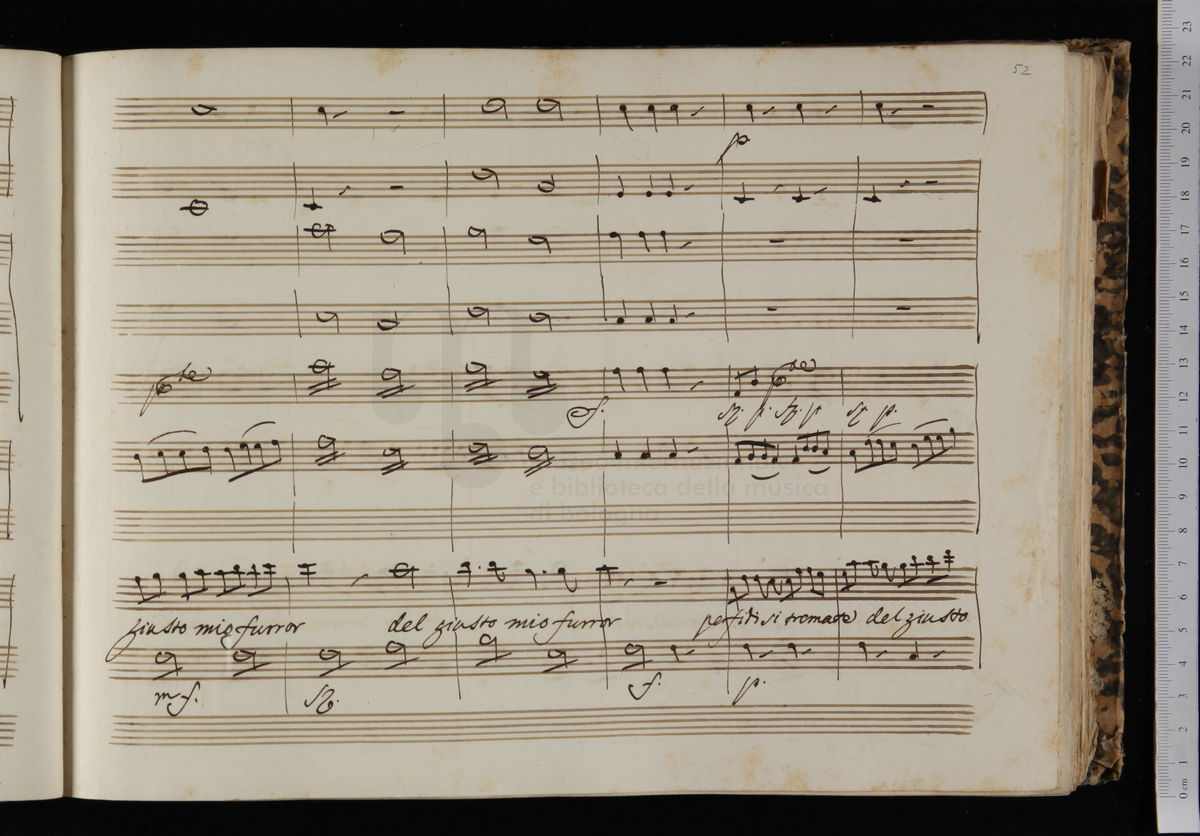 52
p
S.
sf. p. sf. p sf p.
e biblioteca della musica
di bologna
giusto mio furror del giusto mio furror perfidi si tremate del giusto
mf. sf. f. p.
23
22
21
20
19
18
17
16
15
14
13
12
11
10
9
8
7
6
5
4
3
2
1
0 cm